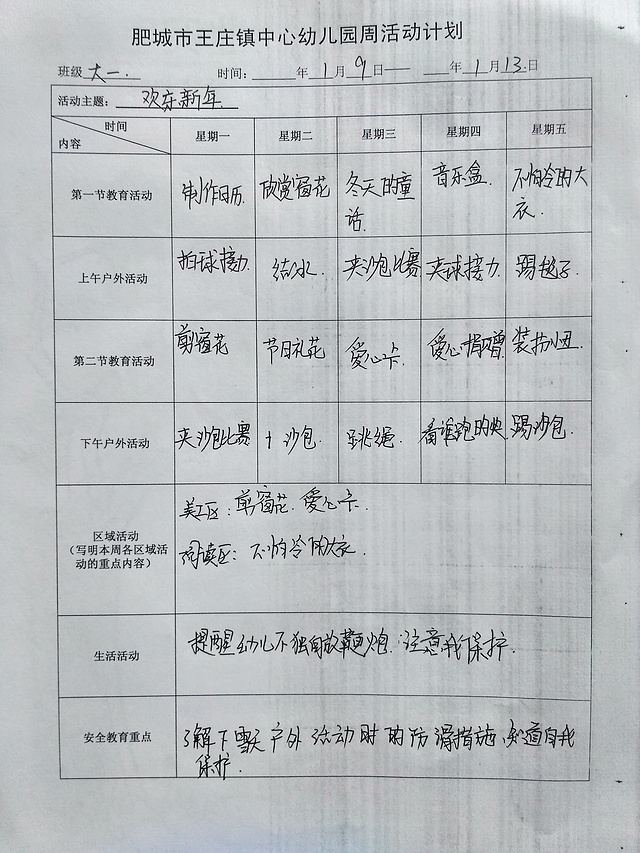 肥城市王庄镇中心幼儿园周活动计划
班级 大一. 时间: 年 1 月 9 日—— 年 1 月 13 日
活动主题: 欢乐新年
时间 内容 星期一 星期二 星期三 星期四 星期五
第一节教育活动 制作日历. 欣赏窗花 冬天的童 音乐盒. 不怕冷的大
话. 衣.
上午户外活动 拍球接力. 结冰. 夹沙包比赛 夹球接力. 踢毽子.
第二节教育活动 剪窗花 节日礼花 爱心卡. 爱心捐赠 装扮小丑.
下午户外活动 夹沙包比赛 沙包. 跳绳. 看谁跑的快 踢沙包.
区域活动
(写明本周各区域活
动的重点内容)
美工区: 剪窗花. 爱心卡.
阅读区: 不怕冷的大衣.
生活活动 提醒幼儿不独自放鞭炮. 注意自我保护.
安全教育重点 了解下雪天户外活动时的防滑措施、知道自我
保护.